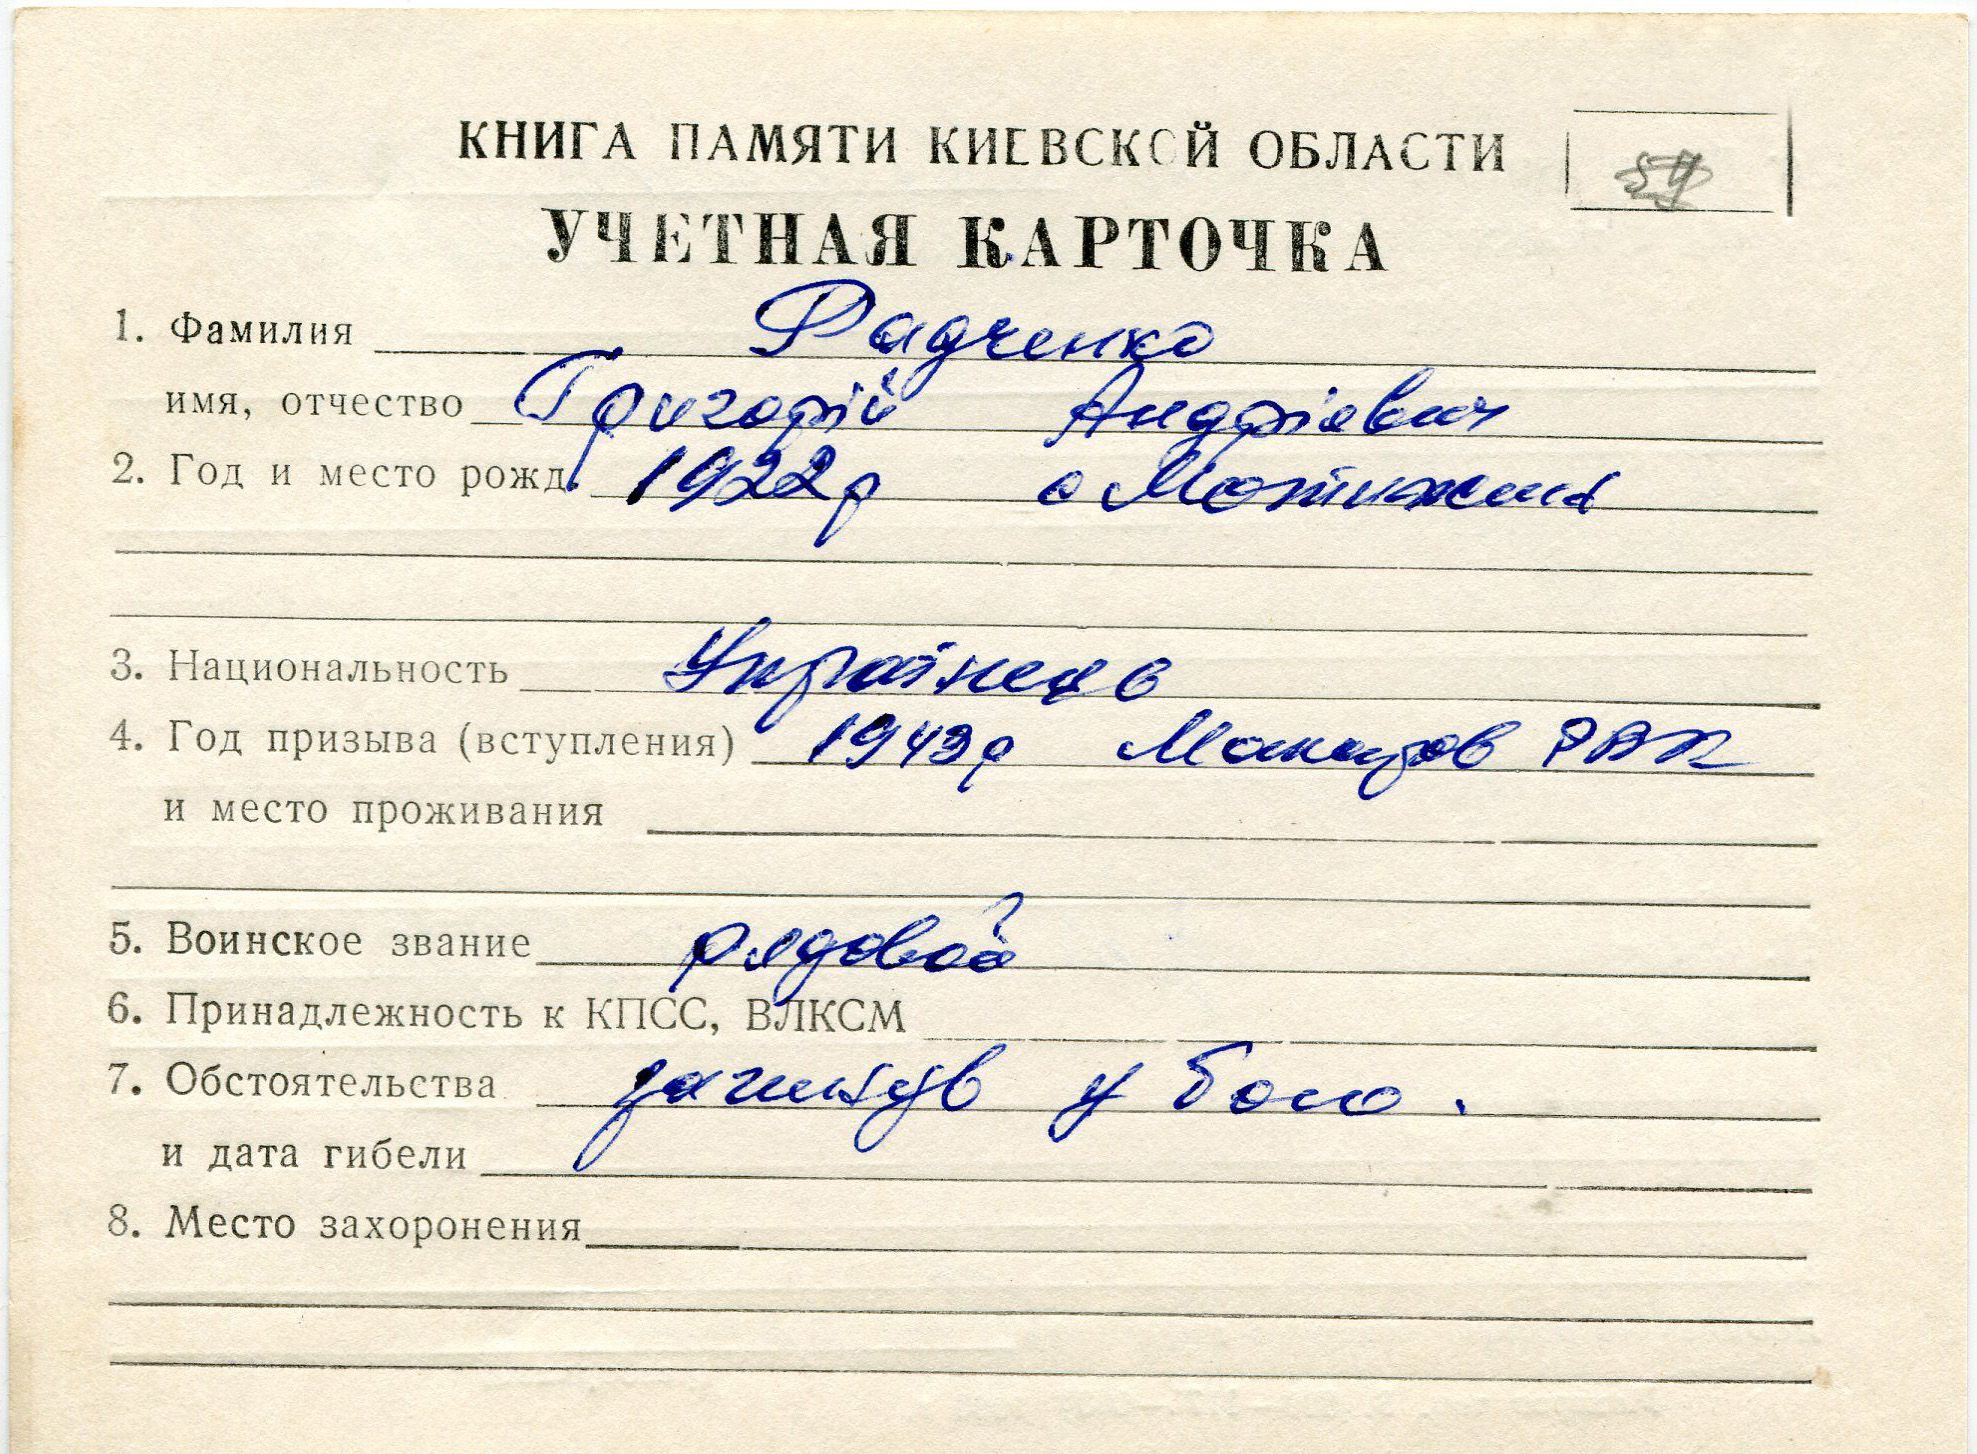 КНИГА ПАМЯТИ КИЕВСКОЙ ОБЛАСТИ
УЧЕТНАЯ КАРТОЧКА
1. Фамилия Радченко
имя, отчество Григорій Андрієвич
2. Год и место рожд. 1922р с Мотижин
3. Национальность Українець
4. Год призыва (вступления) 1943р Макаров РВК
и место проживания
5. Воинское звание рядовой
6. Принадлежность к КПСС, ВЛКСМ
7. Обстоятельства загинув у бою.
и дата гибели
8. Место захоронения